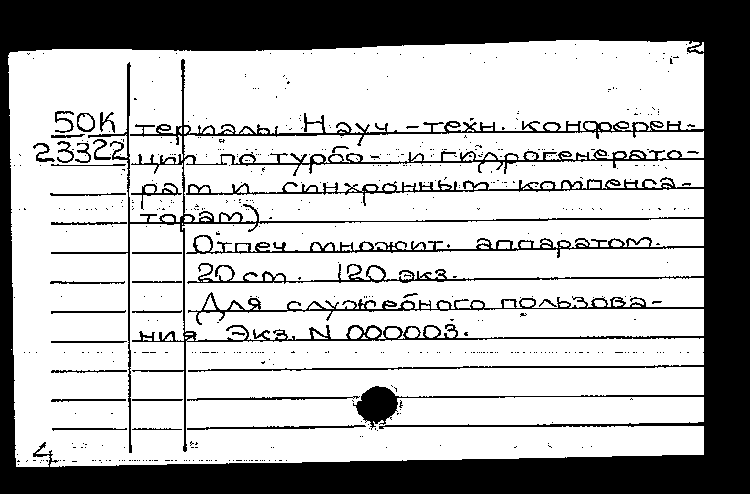 2
50К териалы Науч.-техн. конферен-
23322 ции по турбо- и гидрогенерато-
рам и синхронным компенса-
торам).
Отпеч. множит. аппаратом.
20 см. 120 экз.
Для служебного пользова-
ния. Экз. N 000003.
4